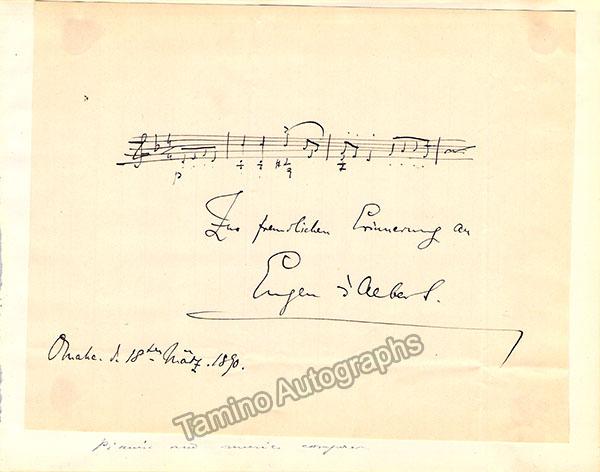 p
Zur freundlichen Erinnerung an
Eugen d'Albert.
Omaha. d. 18ten März. 1890.
Tamino Autographs
Pianist and music composer